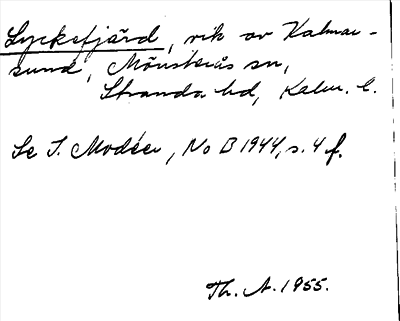 Lycksfjärd, vik av Kalmar-
sund, Mönsterås sn,
Stranda hd, Kalm. l.
Se I. Modéer, No B 1944, s. 4 f.
Th. A. 1955.